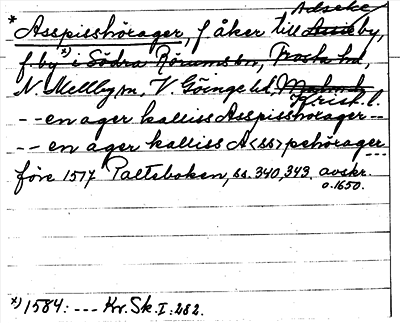 Adseke
* Asspisshörager, f åker till Asseby,
f. by *) i Södra Rörums sn, Frosta hd,
N. Mellby sn, V. Göinge hd, Malmöh
Krist. l.
-- en ager kalliss Asspisshorager --
-- en ager kalliss A<ss>pehörager
---
före 1517 Palteboken, ss. 340, 343. avskr.
o. 1650.
*) 1584: --- Kr. Sk. I: 282.